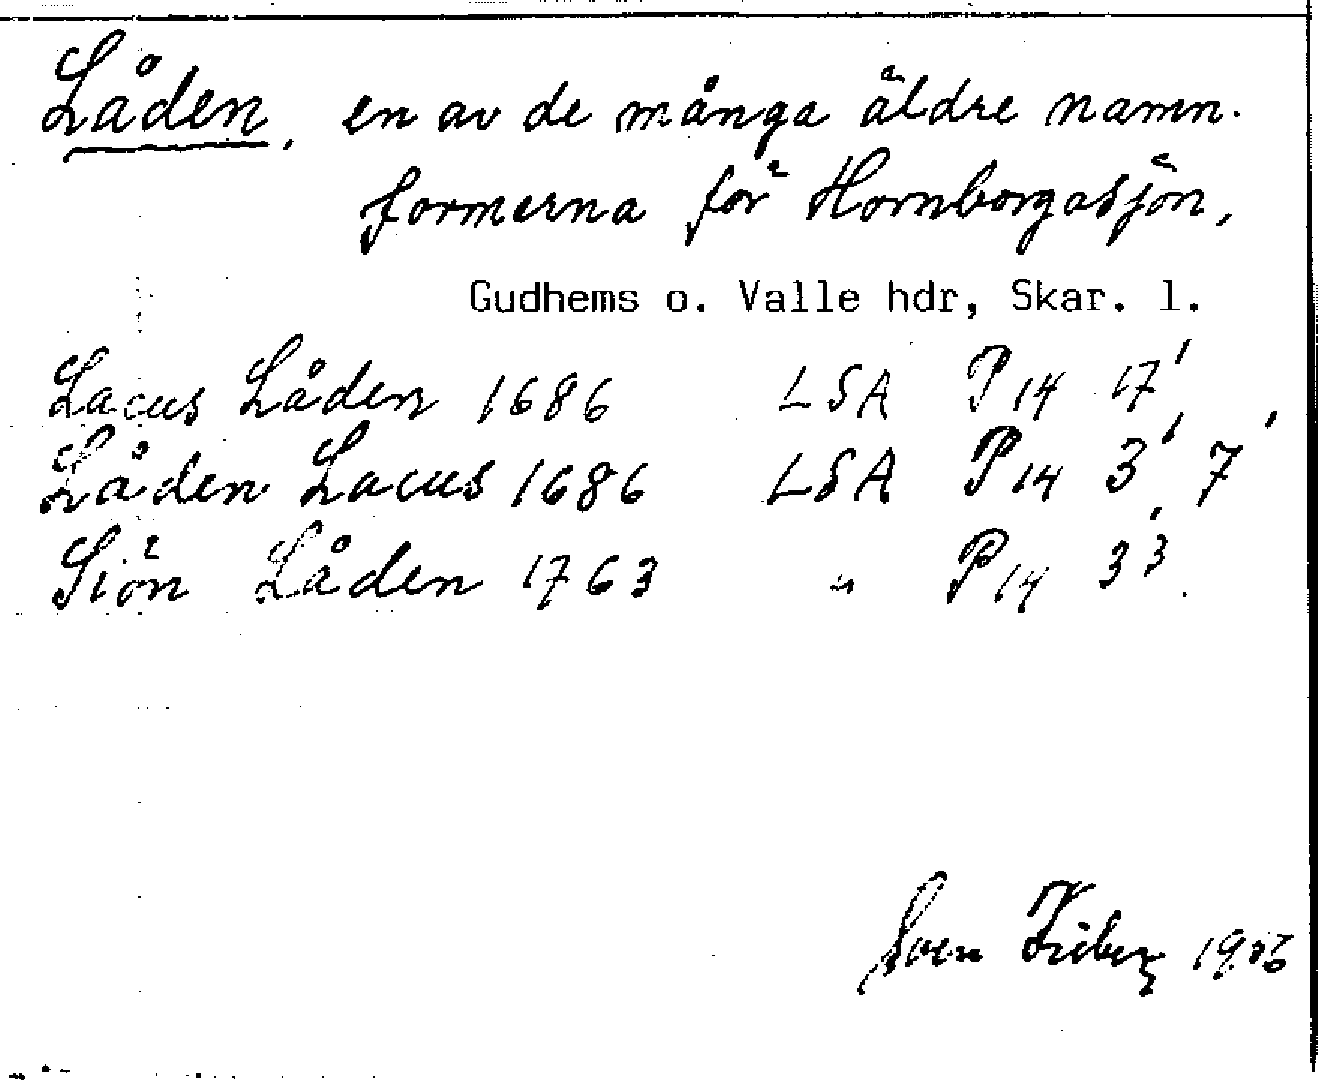 Låden, en av de många äldre namn-
formerna för Hornborgasjön,
Gudhems o. Valle hdr, Skar. l.
Lacus Låden 1686 LSA P14 17'
Låden Lacus 1686 LSA P14 3', 7'
Siön Låden 1763 " P14 3'3.
Sven